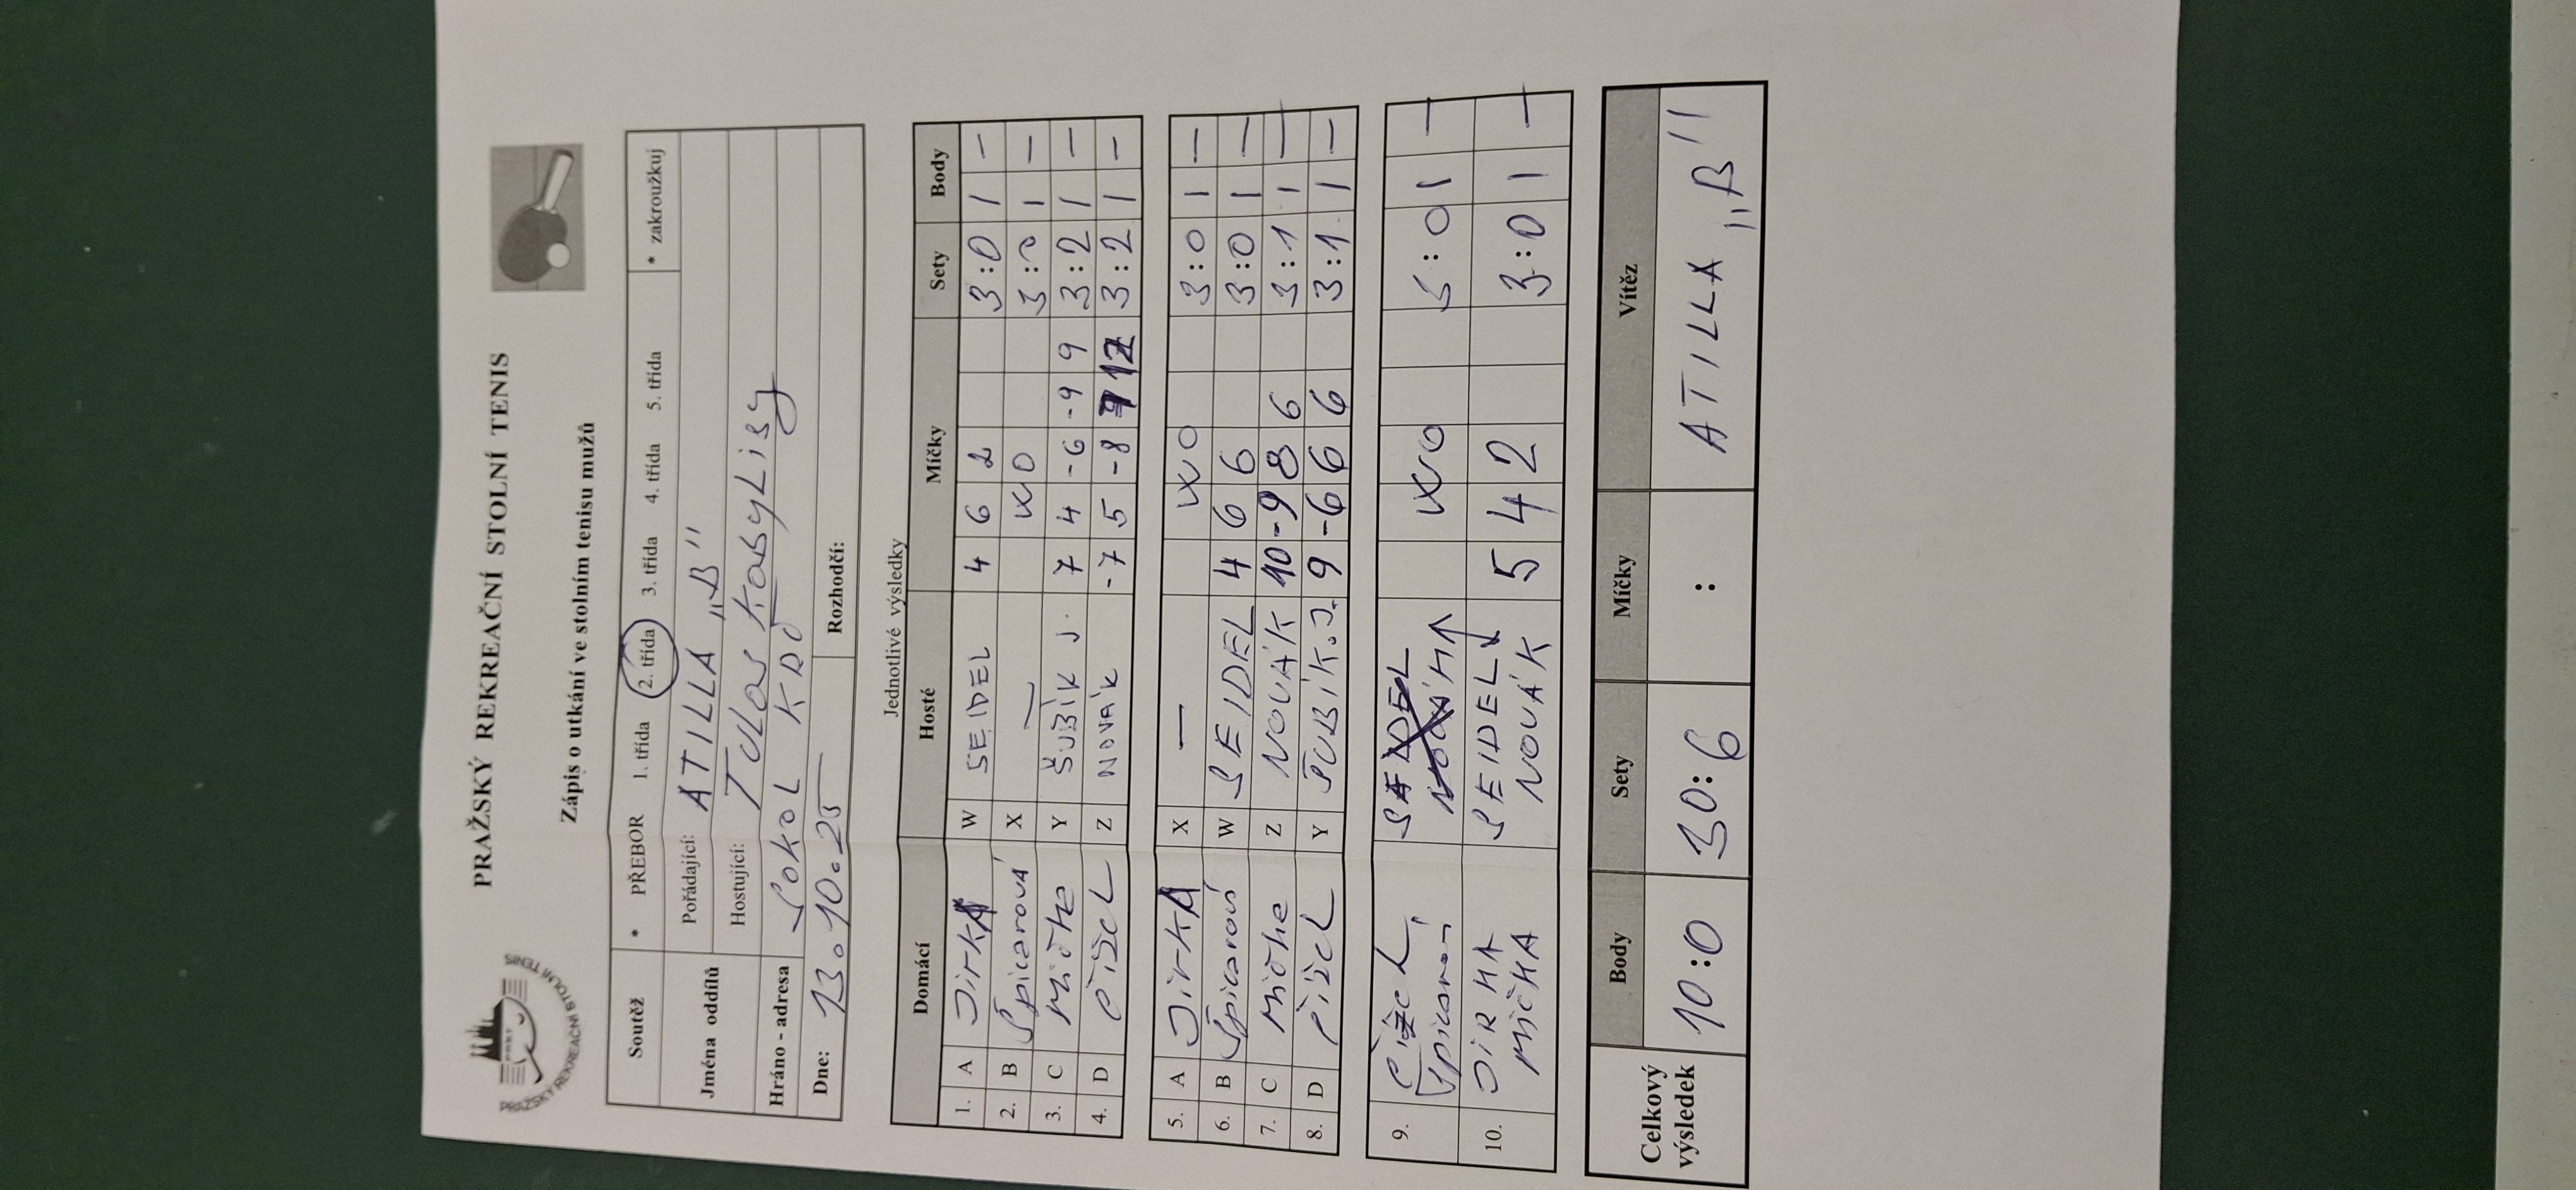 PRAŽSKÝ REKREAČNÍ STOLNÍ TENIS
PRAŽSKÝ REKREAČNÍ STOLNÍ TENIS
Zápis o utkání ve stolním tenisu mužů
Soutěž * PŘEBOR 1. třída 2. třída 3. třída 4. třída 5. třída * zakroužkuj
Jména oddílů Pořádající: ATILLA „B"
Hostující: Kobylisy
Hráno - adresa SOKOL
Dne: 13.10.25 Rozhodčí:
Jednotlivé výsledky
Domácí Hosté Míčky Sety Body
1. A JIRKA W SEIDEL 4 6 2 3:0 1 —
2. B Špicarová X — WO 3:0 1 —
3. C Mička Y ŠUBÍK J. 7 4 -6 -9 9 3:2 1 —
4. D W Z NOVÁK -7 5 -8 9 12 3:2 1 —
5. A JIRKA X — WO 3:0 1 —
6. B Špicarová W SEIDEL 4 6 6 3:0 1 —
7. C Mička Z NOVÁK 10 -9 8 6 3:1 1 —
8. D Y ŠUBÍK J. 9 -6 6 6 3:1 1 —
9. Špicarová WO 3:0 1 —
10. JIRKA SEIDEL 5 4 2 3:0 1 —
MIČKA NOVÁK
Celkový výsledek Body Sety Míčky Vítěz
10:0 30:6 : ATILLA „B"